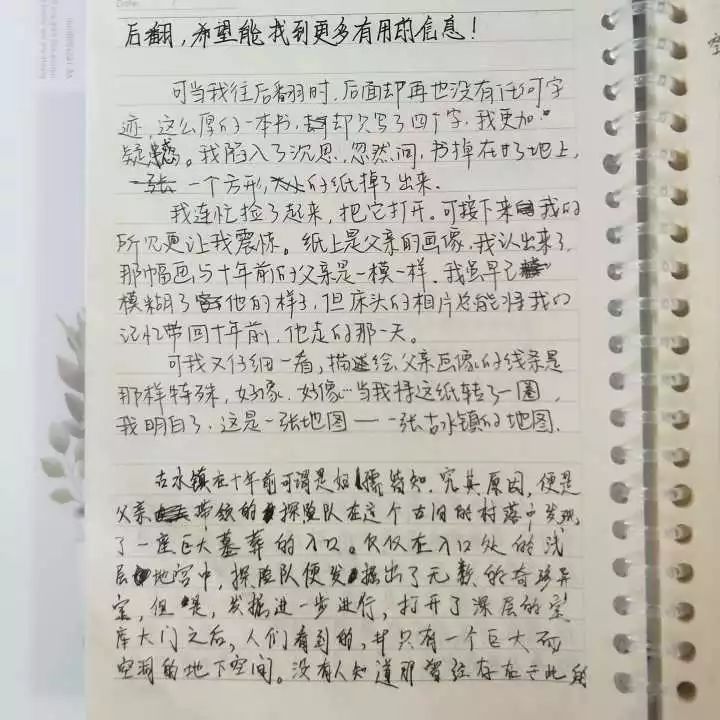 Date:
后翻,希望能找到更多有用的信息!
可当我往后翻时,后面却再也没有任何字
迹,这么厚的一本书,却只写了四个字,我更加
疑惑。我陷入了沉思,忽然间,书掉在了地上,
一个方形的纸掉了出来.
我连忙捡了起来,把它打开。可接下来我的
所见更让我震惊。纸上是父亲的画像,我认出来了,
那幅画与十年前的父亲是一模一样。我虽早已
模糊了他的样子,但床头的相片总能将我的
记忆带回十年前,他走的那一天。
可我又仔细一看,描绘父亲画像的线条是
那样特殊,好像,好像…当我将这纸转了一圈,
我明白了,这是一张地图——一张古水镇的地图.
古水镇在十年前可谓是妇孺皆知.究其原因,便是
父亲率领的探险队在这个古旧的村落中发现
了一座巨大墓葬的入口。仅仅在入口处的浅
层地宫中,探险队便发掘出了无数的奇珍异
宝,但是,发掘进一步进行,打开了深层的宝
库大门之后,人们看到的,并只有一个巨大而
空洞的地下空间。没有人知道那曾经存在于此的